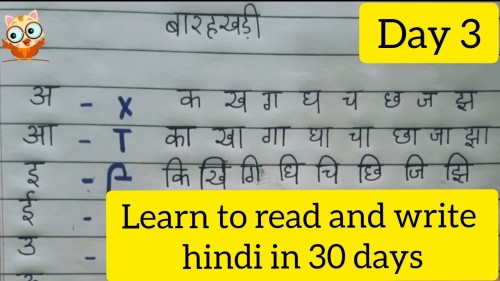 बारहखड़ी
Day 3
अ - x क ख ग घ च छ ज झ
आ - T का खा गा घा चा छा जा झा
इ - कि खि गि घि चि छि जि झि
ई -
उ -
Learn to read and write
hindi in 30 days